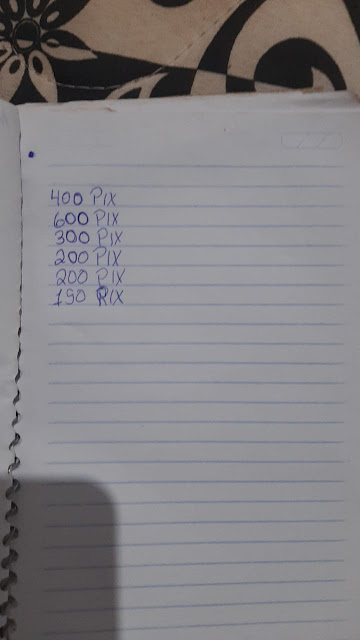 400 PIX
600 PIX
300 PIX
200 PIX
200 PIX
150 PIX